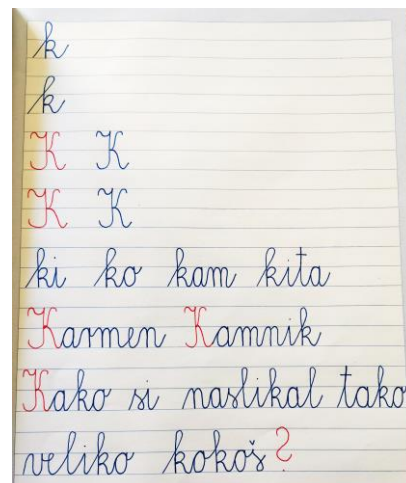 k
k
K K
K K
ki ko kam kita
Karmen Kamnik
Kako si naslikal tako
veliko kokoš?